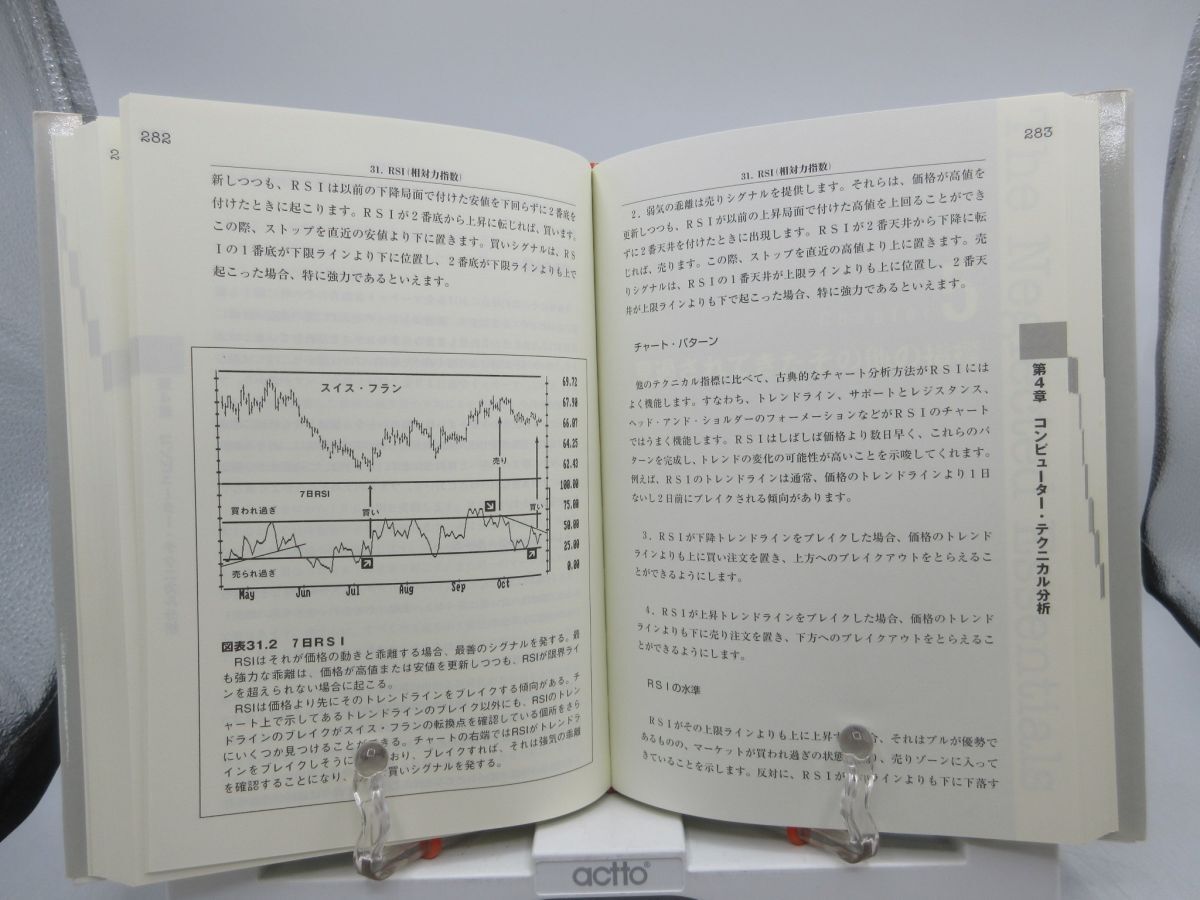 282
31. RSI(相対力指数)
新しつつも、ＲＳＩは以前の下降局面で付けた安値を下回らずに２番底を
付けたときに起こります。ＲＳＩが２番底から上昇に転じれば、買います。
この際、ストップを直近の安値より下に置きます。買いシグナルは、ＲＳ
Ｉの１番底が下限ラインより下に位置し、２番底が下限ラインよりも上で
起こった場合、特に強力であるといえます。
スイス・フラン
69.72
67.90
66.07
64.25
62.43
売り
100.00
7日RSI
75.00
買われ過ぎ
買い
買い
50.00
25.00
売られ過ぎ
0.00
May Jun Jul Aug Sep Oct
図表31.2　7日ＲＳＩ
RSIはそれが価格の動きと乖離する場合、最善のシグナルを発する。最
も強力な乖離は、価格が高値または安値を更新しつつも、RSIが限界ライ
ンを超えられない場合に起こる。
RSIは価格より先にそのトレンドラインをブレイクする傾向がある。チ
ャート上で示してあるトレンドラインのブレイク以外にも、RSIのトレン
ドラインのブレイクがスイス・フランの転換点を確認している個所をさら
にいくつか見つけることができる。チャートの右端ではRSIがトレンドラ
インをブレイクしそうに　おり、ブレイクすれば、それは強気の乖離
を確認することになり、　買いシグナルを発する。
283
31. RSI(相対力指数)
２．弱気の乖離は売りシグナルを提供します。それらは、価格が高値を
更新しつつも、ＲＳＩが以前の上昇局面で付けた高値を上回ることができ
ずに２番天井を付けたときに出現します。ＲＳＩが２番天井から下降に転
じれば、売ります。この際、ストップを直近の高値より上に置きます。売
りシグナルは、ＲＳＩの１番天井が上限ラインよりも上に位置し、２番天
井が上限ラインよりも下で起こった場合、特に強力であるといえます。
チャート・パターン
他のテクニカル指標に比べて、古典的なチャート分析方法がＲＳＩには
よく機能します。すなわち、トレンドライン、サポートとレジスタンス、
ヘッド・アンド・ショルダーのフォーメーションなどがＲＳＩのチャート
ではうまく機能します。ＲＳＩはしばしば価格より数日早く、これらのパ
ターンを完成し、トレンドの変化の可能性が高いことを示唆してくれます。
例えば、ＲＳＩのトレンドラインは通常、価格のトレンドラインより１日
ないし２日前にブレイクされる傾向があります。
３．ＲＳＩが下降トレンドラインをブレイクした場合、価格のトレンド
ラインよりも上に買い注文を置き、上方へのブレイクアウトをとらえるこ
とができるようにします。
４．ＲＳＩが上昇トレンドラインをブレイクした場合、価格のトレンド
ラインよりも下に売り注文を置き、下方へのブレイクアウトをとらえるこ
とができるようにします。
ＲＳＩの水準
ＲＳＩがその上限ラインよりも上に上昇す　合、それはブルが優勢で
あるものの、マーケットが買われ過ぎの状態　り、売りゾーンに入って
きていることを示します。反対に、ＲＳＩが　ラインよりも下に下落す
第4章　コンピューター・テクニカル分析
actto